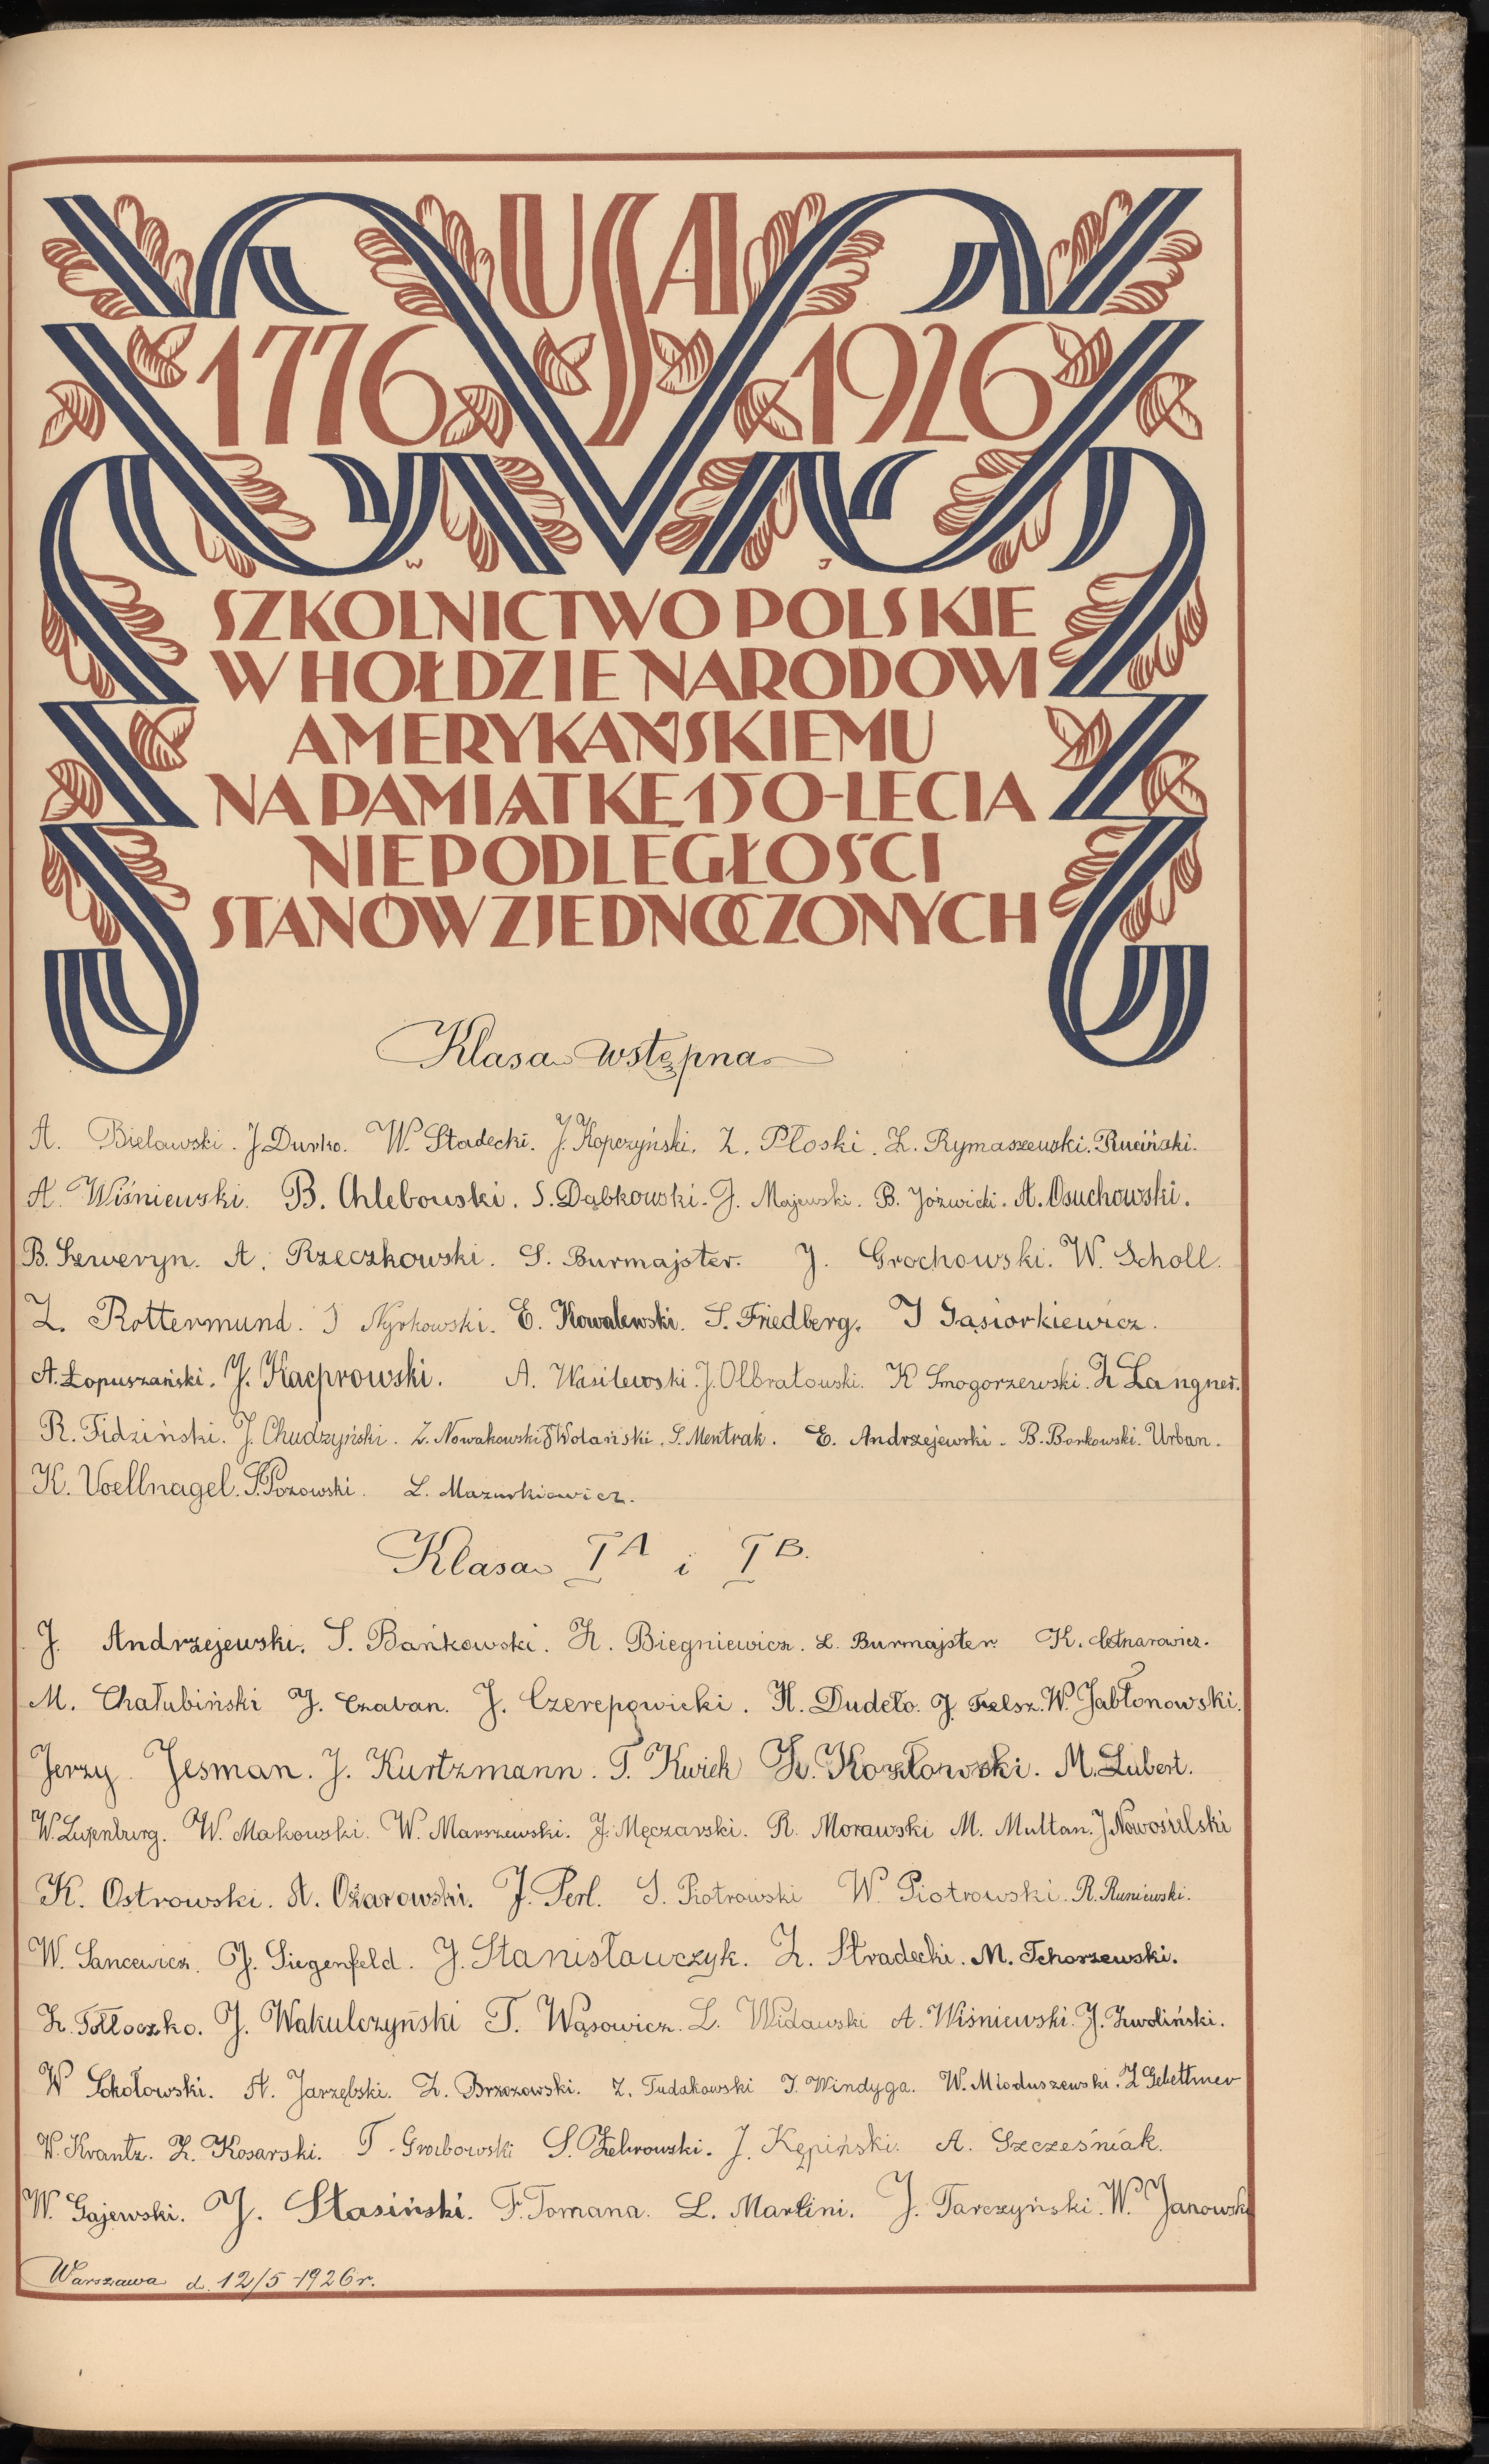 USA
1776 1926
W J
SZKOLNICTWO POLSKIE
W HOŁDZIE NARODOWI
AMERYKAŃSKIEMU
NA PAMIĄTKĘ 150-LECIA
NIEPODLEGŁOŚCI
STANÓW ZJEDNOCZONYCH
Klasa wstępna
A. Bielawski. J. Durko. W. Stadecki. J. Kopczyński. Z. Płoski. Z. Rymaszewski. Ruciński.
A. Wiśniewski. B. Chlebowski. S. Dąbkowski. J. Majewski. B. Jóźwicki. A. Osuchowski.
B. Szweryn. A. Rzeczkowski. S. Burmajster. J. Grochowski. W. Scholl.
Z. Rottermund. J Nyrkowski. E. Kowalewski. S. Friedberg. J Gąsiorkiewicz.
A. Łopuszański. J. Kacprowski. A. Wasilewski. J. Olbratowski. K Smogorzewski. Z Langner.
R. Fidziński. J. Chudzyński. Z. Nowakowski Wolański. S. Mentrak. E. Andrzejewski. B. Borkowski. Urban.
K. Voellnagel. S. Pozowski. L. Mazurkiewicz.
Klasa I A i I B.
J. Andrzejewski. S. Bańkowski. H. Biegniewicz. L. Burmajster. K. Cetnarowicz.
M. Chałubiński J. Czaban. J. Czerepowicki. H. Dudeło. J. Felsz. W. Jabłonowski.
Jerzy Jesman. J. Kurtzmann. T. Kwiek Z. Kozłowski. M. Lubert.
W. Luxenburg. W. Makowski. W. Marszewski. J. Męczarski. R. Morawski M. Multan. J Nowosielski
K. Ostrowski. A. Ożarowski. J. Perl. S. Piotrowski W. Piotrowski. R. Runiewski.
W. Sancewicz. J. Siegenfeld. J. Stanisławczyk. Z. Stradecki. M. Tchorzewski.
Z. Tołłoczko. J. Wakulczyński T. Wąsowicz. L. Widawski A. Wiśniewski. J. Zwoliński.
W Sokołowski. A. Jarzębski. Z. Brzozowski. Z. Tudakowski J. Windyga. W. Mioduszewski. Z Gebethner
W. Krantz. Z. Kosarski. T. Grabowski S. Żebrowski. J. Kępiński. A. Szcześniak.
W. Gajewski. J. Stasiński. F. Tomana. L. Martini. J. Tarczyński. W. Janowski
Warszawa d. 12/5 1926 r.